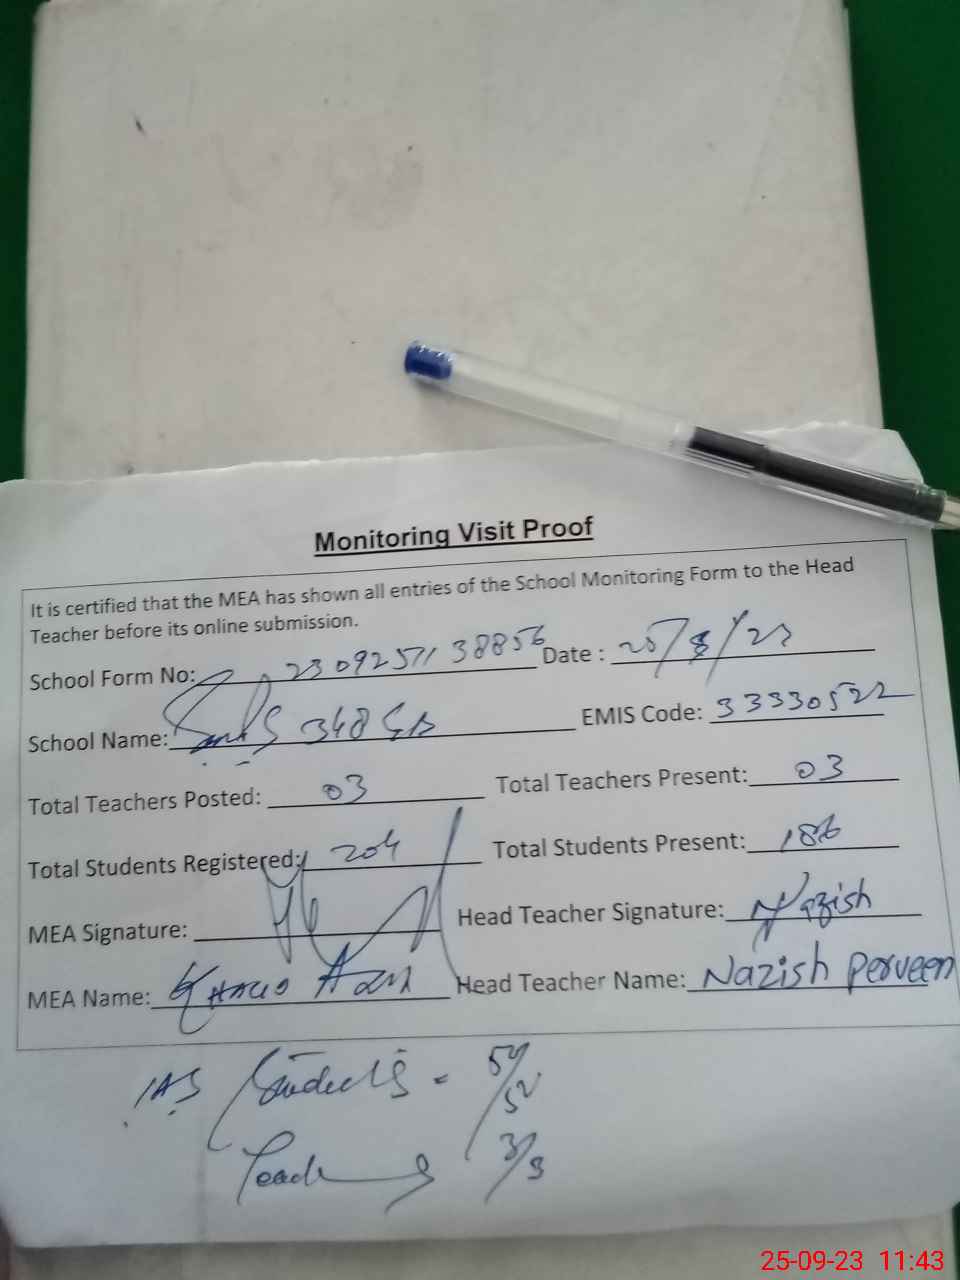 Monitoring Visit Proof
It is certified that the MEA has shown all entries of the School Monitoring Form to the Head
Teacher before its online submission.
School Form No: 23092571138856 Date :
School Name: 348 GB EMIS Code: 33330522
Total Teachers Posted: 03 Total Teachers Present: 03
Total Students Registered: 204 Total Students Present: 186
MEA Signature: Head Teacher Signature: Nazish
MEA Name: Head Teacher Name: Nazish Perveen
Students = 54/52
Teachers 3/3
25-09-23 11:43